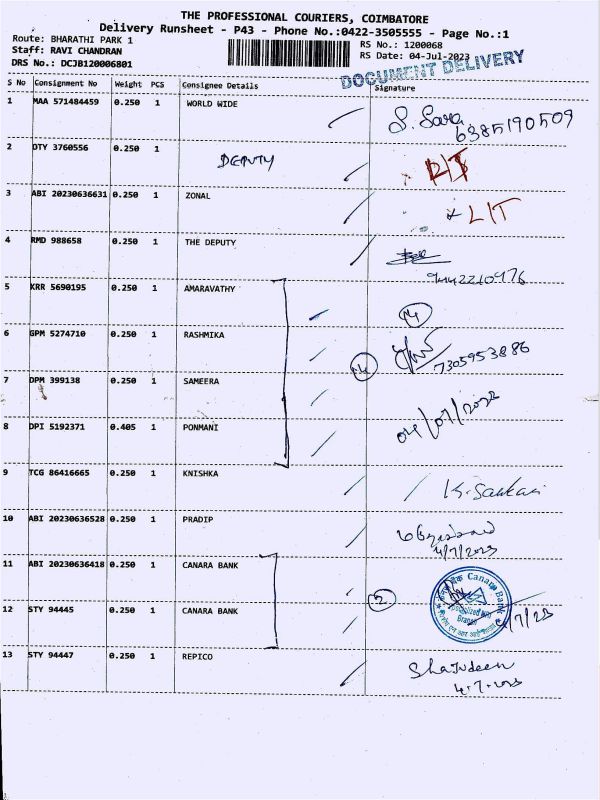 THE PROFESSIONAL COURIERS, COIMBATORE
Delivery Runsheet - P43 - Phone No.:0422-3505555 - Page No.:1
Route: BHARATHI PARK 1
Staff: RAVI CHANDRAN
DRS No.: DCJB120006801
RS No.: 1200068
RS Date: 04-Jul-2023
DOCUMENT DELIVERY
S No Consignment No Weight PCS Consignee Details Signature
1 MAA 571484459 0.250 1 WORLD WIDE
6385190509
2 DTY 3760556 0.250 1 DEPUTY
3 ABI 20230636631 0.250 1 ZONAL L/T
4 RMD 988658 0.250 1 THE DEPUTY
9442210976
5 KRR 5690195 0.250 1 AMARAVATHY
6 GPM 5274710 0.250 1 RASHMIKA
7305953886
7 DPM 399138 0.250 1 SAMEERA
8 DPI 5192371 0.405 1 PONMANI
9 TCG 86416665 0.250 1 KNISHKA
10 ABI 20230636528 0.250 1 PRADIP
4/7/23
11 ABI 20230636418 0.250 1 CANARA BANK
Canara Bank
2
12 STY 94445 0.250 1 CANARA BANK
13 STY 94447 0.250 1 REPICO
4.7.2023